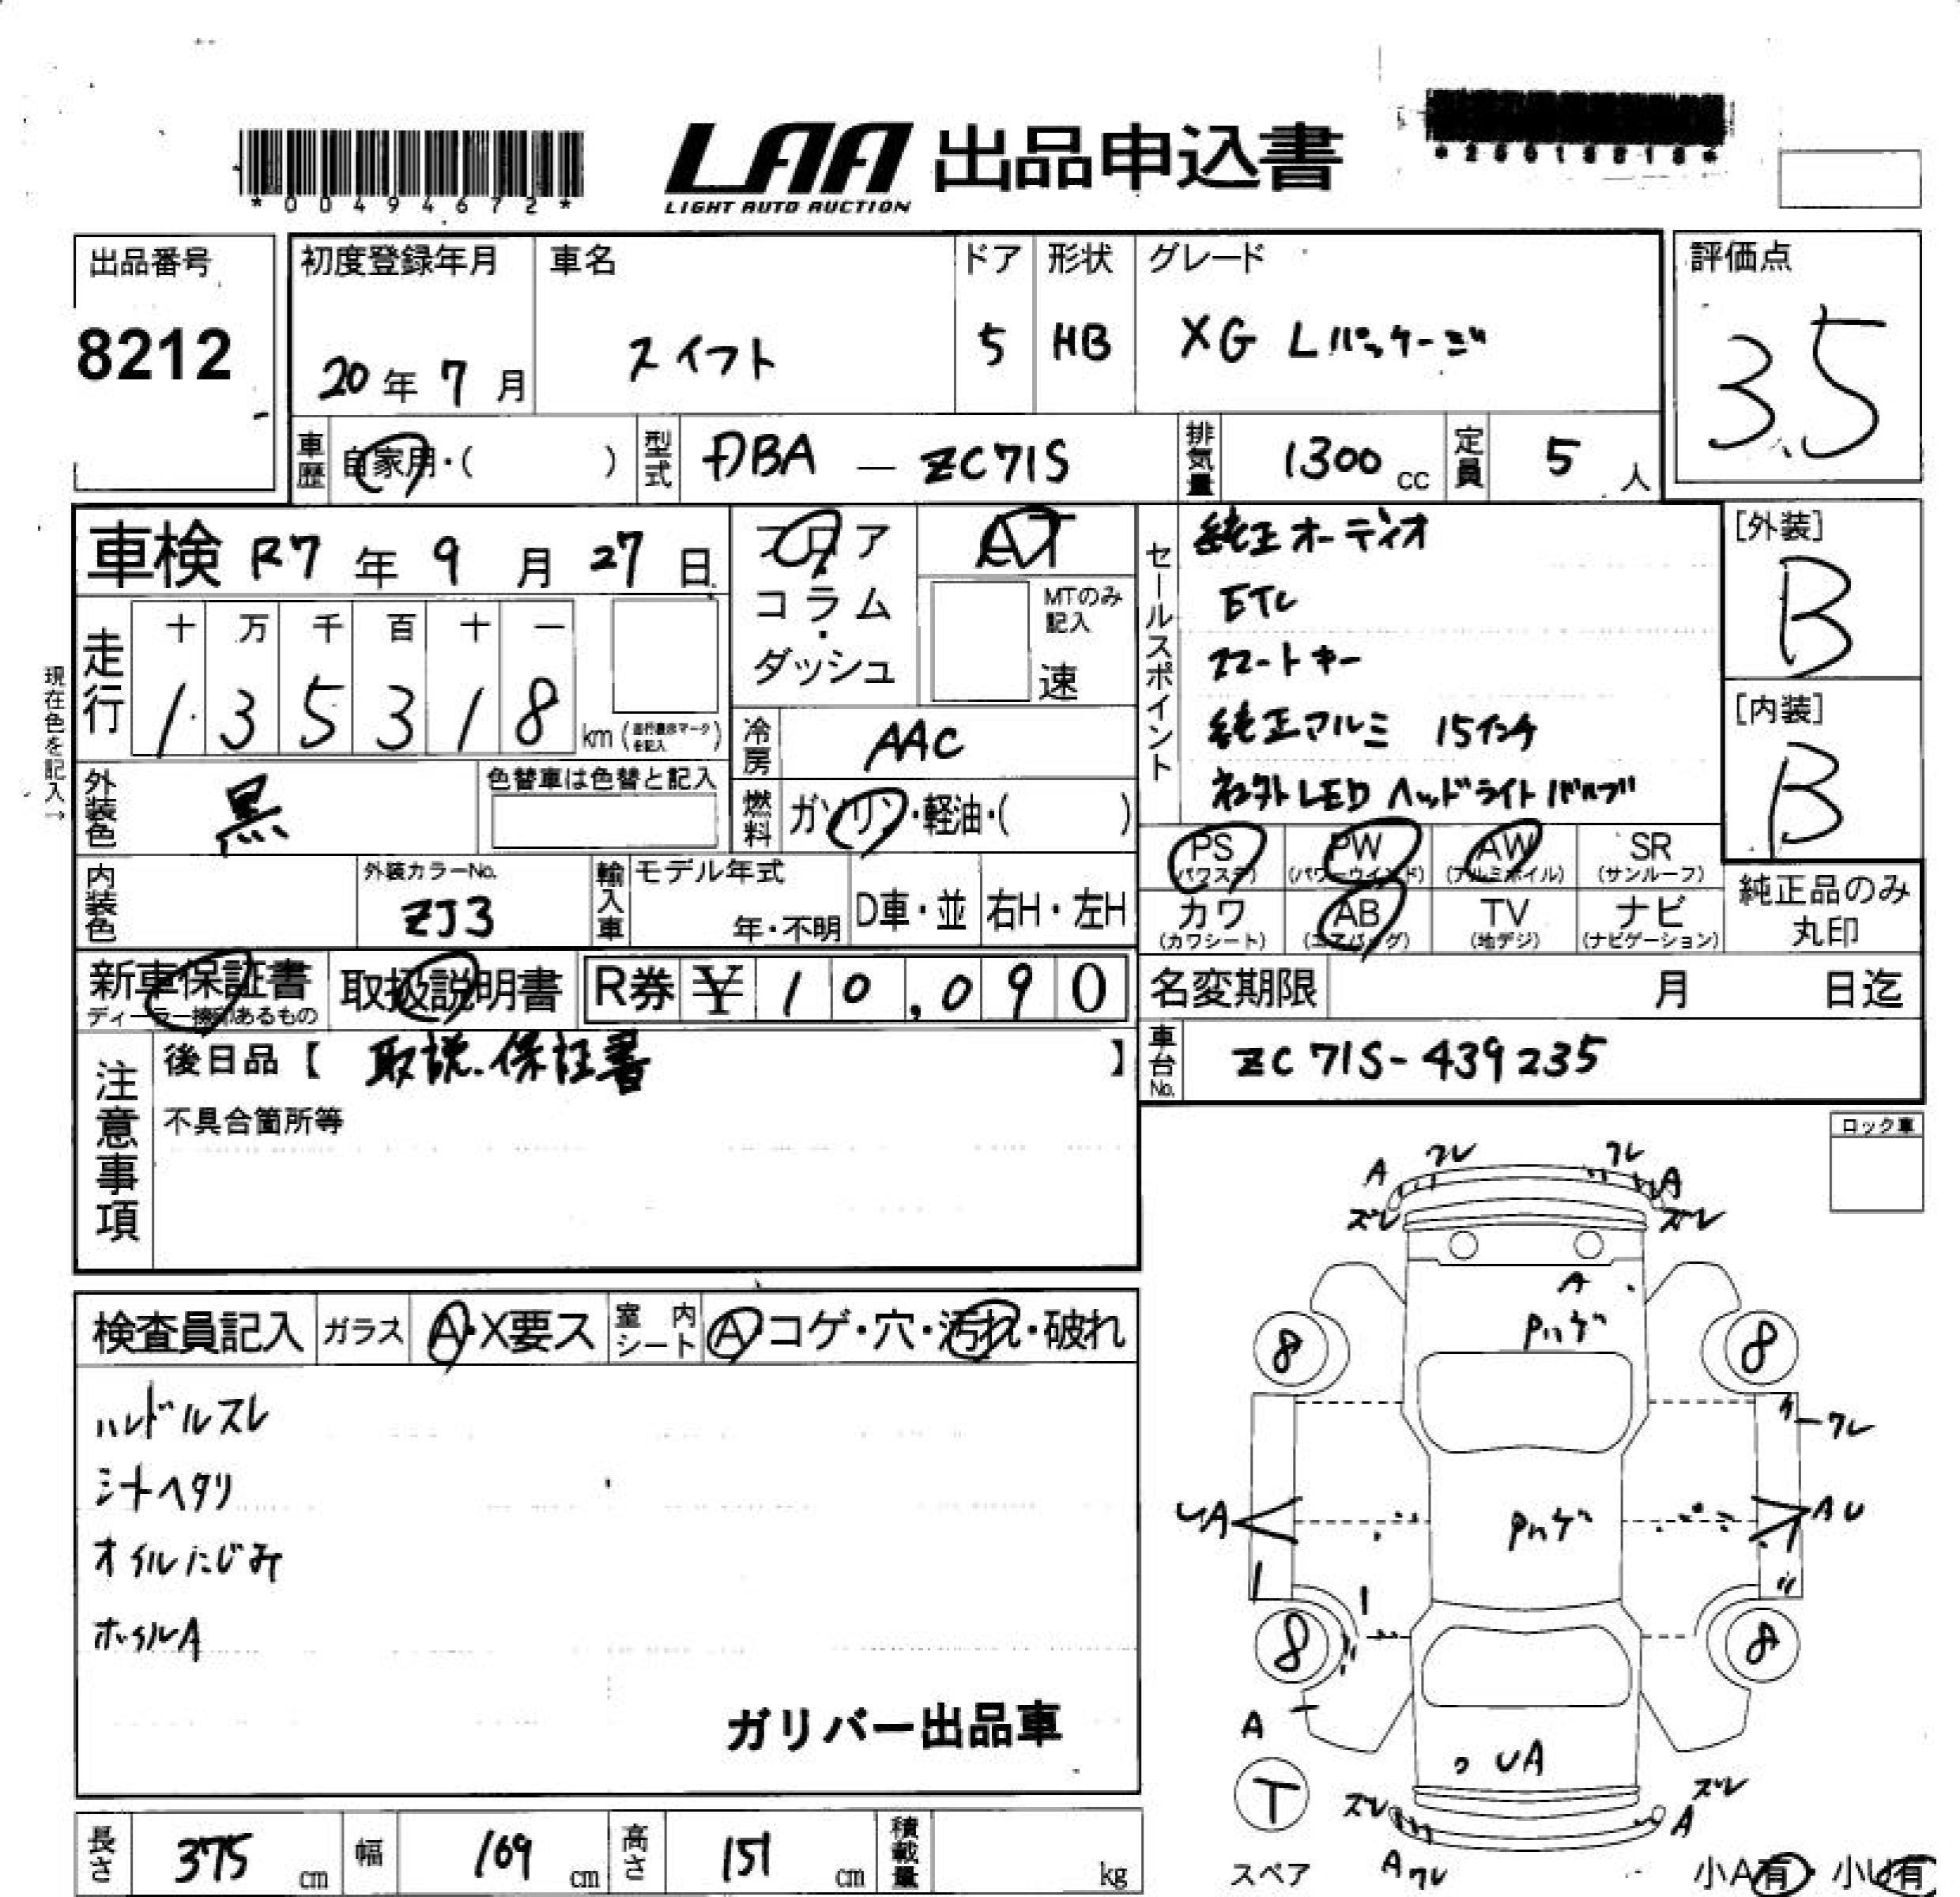 *00494672*
LAA 出品申込書
LIGHT AUTO AUCTION
出品番号
8212
初度登録年月
20年 7月
車名
スイフト
ドア
5
形状
HB
グレード
XG Lパッケージ
評価点
3.5
車歴 自家用・( )
型式 DBA — ZC71S
排気量 1300 cc
定員 5 人
車検 R7年 9月 27日
フロア
コラム
・
ダッシュ
AT
MTのみ記入
速
現在色を記入→
走行
十 万 千 百 十 一
1 3 5 3 1 8 km (走行表示マークを記入)
冷房 AAC
外装色 黒
色替車は色替と記入
燃料 ガソリン・軽油・( )
内装色
外装カラーNo.
ZJ3
輸入車
モデル年式
年・不明
D車・並
右H・左H
セールスポイント
純正オーディオ
ETC
スマートキー
純正アルミ 15インチ
社外LEDヘッドライトバルブ
[外装]
B
[内装]
B
PS (パワステ)
PW (パワーウインド)
AW (アルミホイル)
SR (サンルーフ)
カワ (カワシート)
AB (エアバッグ)
TV (地デジ)
ナビ (ナビゲーション)
純正品のみ
丸印
新車保証書
ディーラー捺印あるもの
取扱説明書
R券 ¥ 10,090
名変期限 月 日迄
車台No. ZC71S-439235
注意事項
後日品【 取説.保証書 】
不具合箇所等
ロック車
検査員記入
ガラス A・X要ス
室内シート A・コゲ・穴・汚れ・破れ
ハンドルスレ
シートヘタリ
オイルにじみ
ホイルA
ガリバー出品車
A ワレ ワレ A
ズレ ズレ
A
Pハゲ
8 8
ワレ
UA Pハゲ AU
8 8
A
UA
T
スペア
ズレ ズレ
A
A ワレ
小A有・小U有
長さ 375 cm
幅 169 cm
高さ 151 cm
積載量 kg